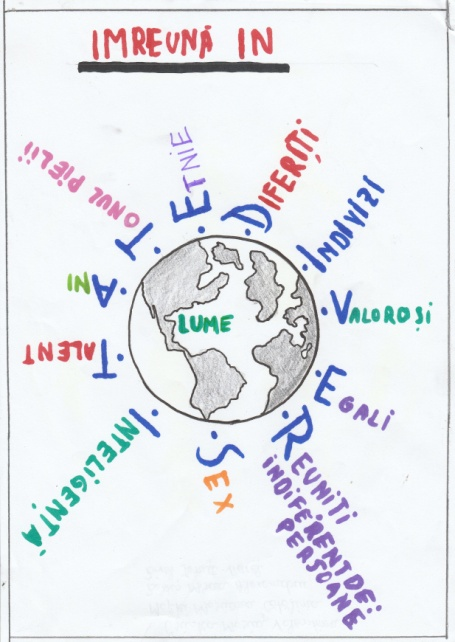 IMREUNĂ IN
DIFERIȚI
INDIVIZI
VALOROȘI
EGALI
REUNITI
INDIFERENT DE:
PERSOANE
SEX
INTELIGENȚĂ
TALENT
ANI
TONUL PIELII
ETNIE
LUME